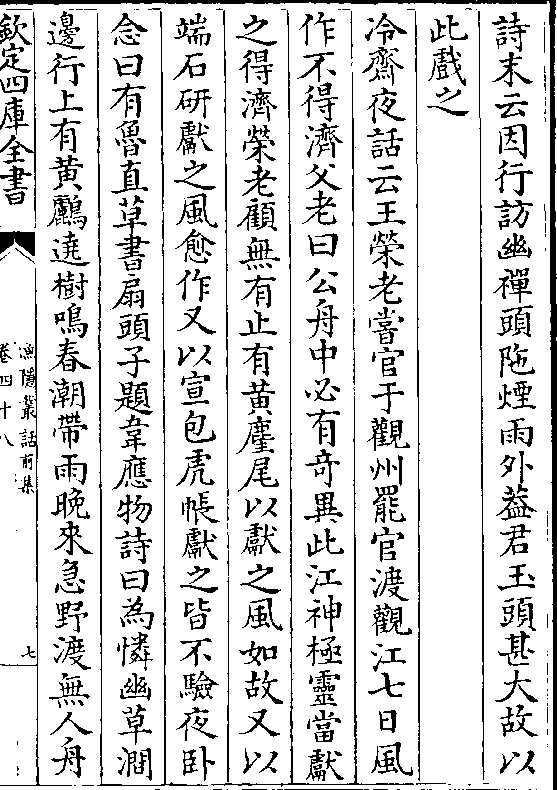 詩末云因行訪幽禪頭陁煙雨外葢君玉頭甚大故以
此戲之
冷齋夜話云王榮老嘗官于觀州罷官渡觀江七日風
作不得濟父老曰公舟中必有奇異此江神極靈當獻
之得濟榮老顧無有止有黃麈尾以獻之風如故又以
端石研獻之風愈作又以宣包虎帳獻之皆不驗夜卧
念曰有魯直草書扇頭子題韋應物詩曰為憐幽草澗
邊行上有黃鸝遶樹鳴春潮帶雨晚來急野渡無人舟
欽定四庫全書
漁隱叢話前集
卷四十八
七